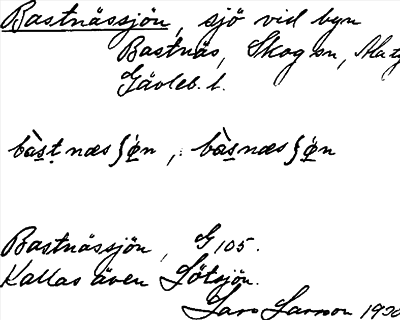 Bastnässjön, sjö vid byn
Bastnäs, Skog sn,
Gävleb. l.
bàs̱ṭnæsʃǿ̱n, bàs̱næsʃǿ̱n
Bastnässjön, G 105.
Kallas även Lötsjön.
Lars Larsson